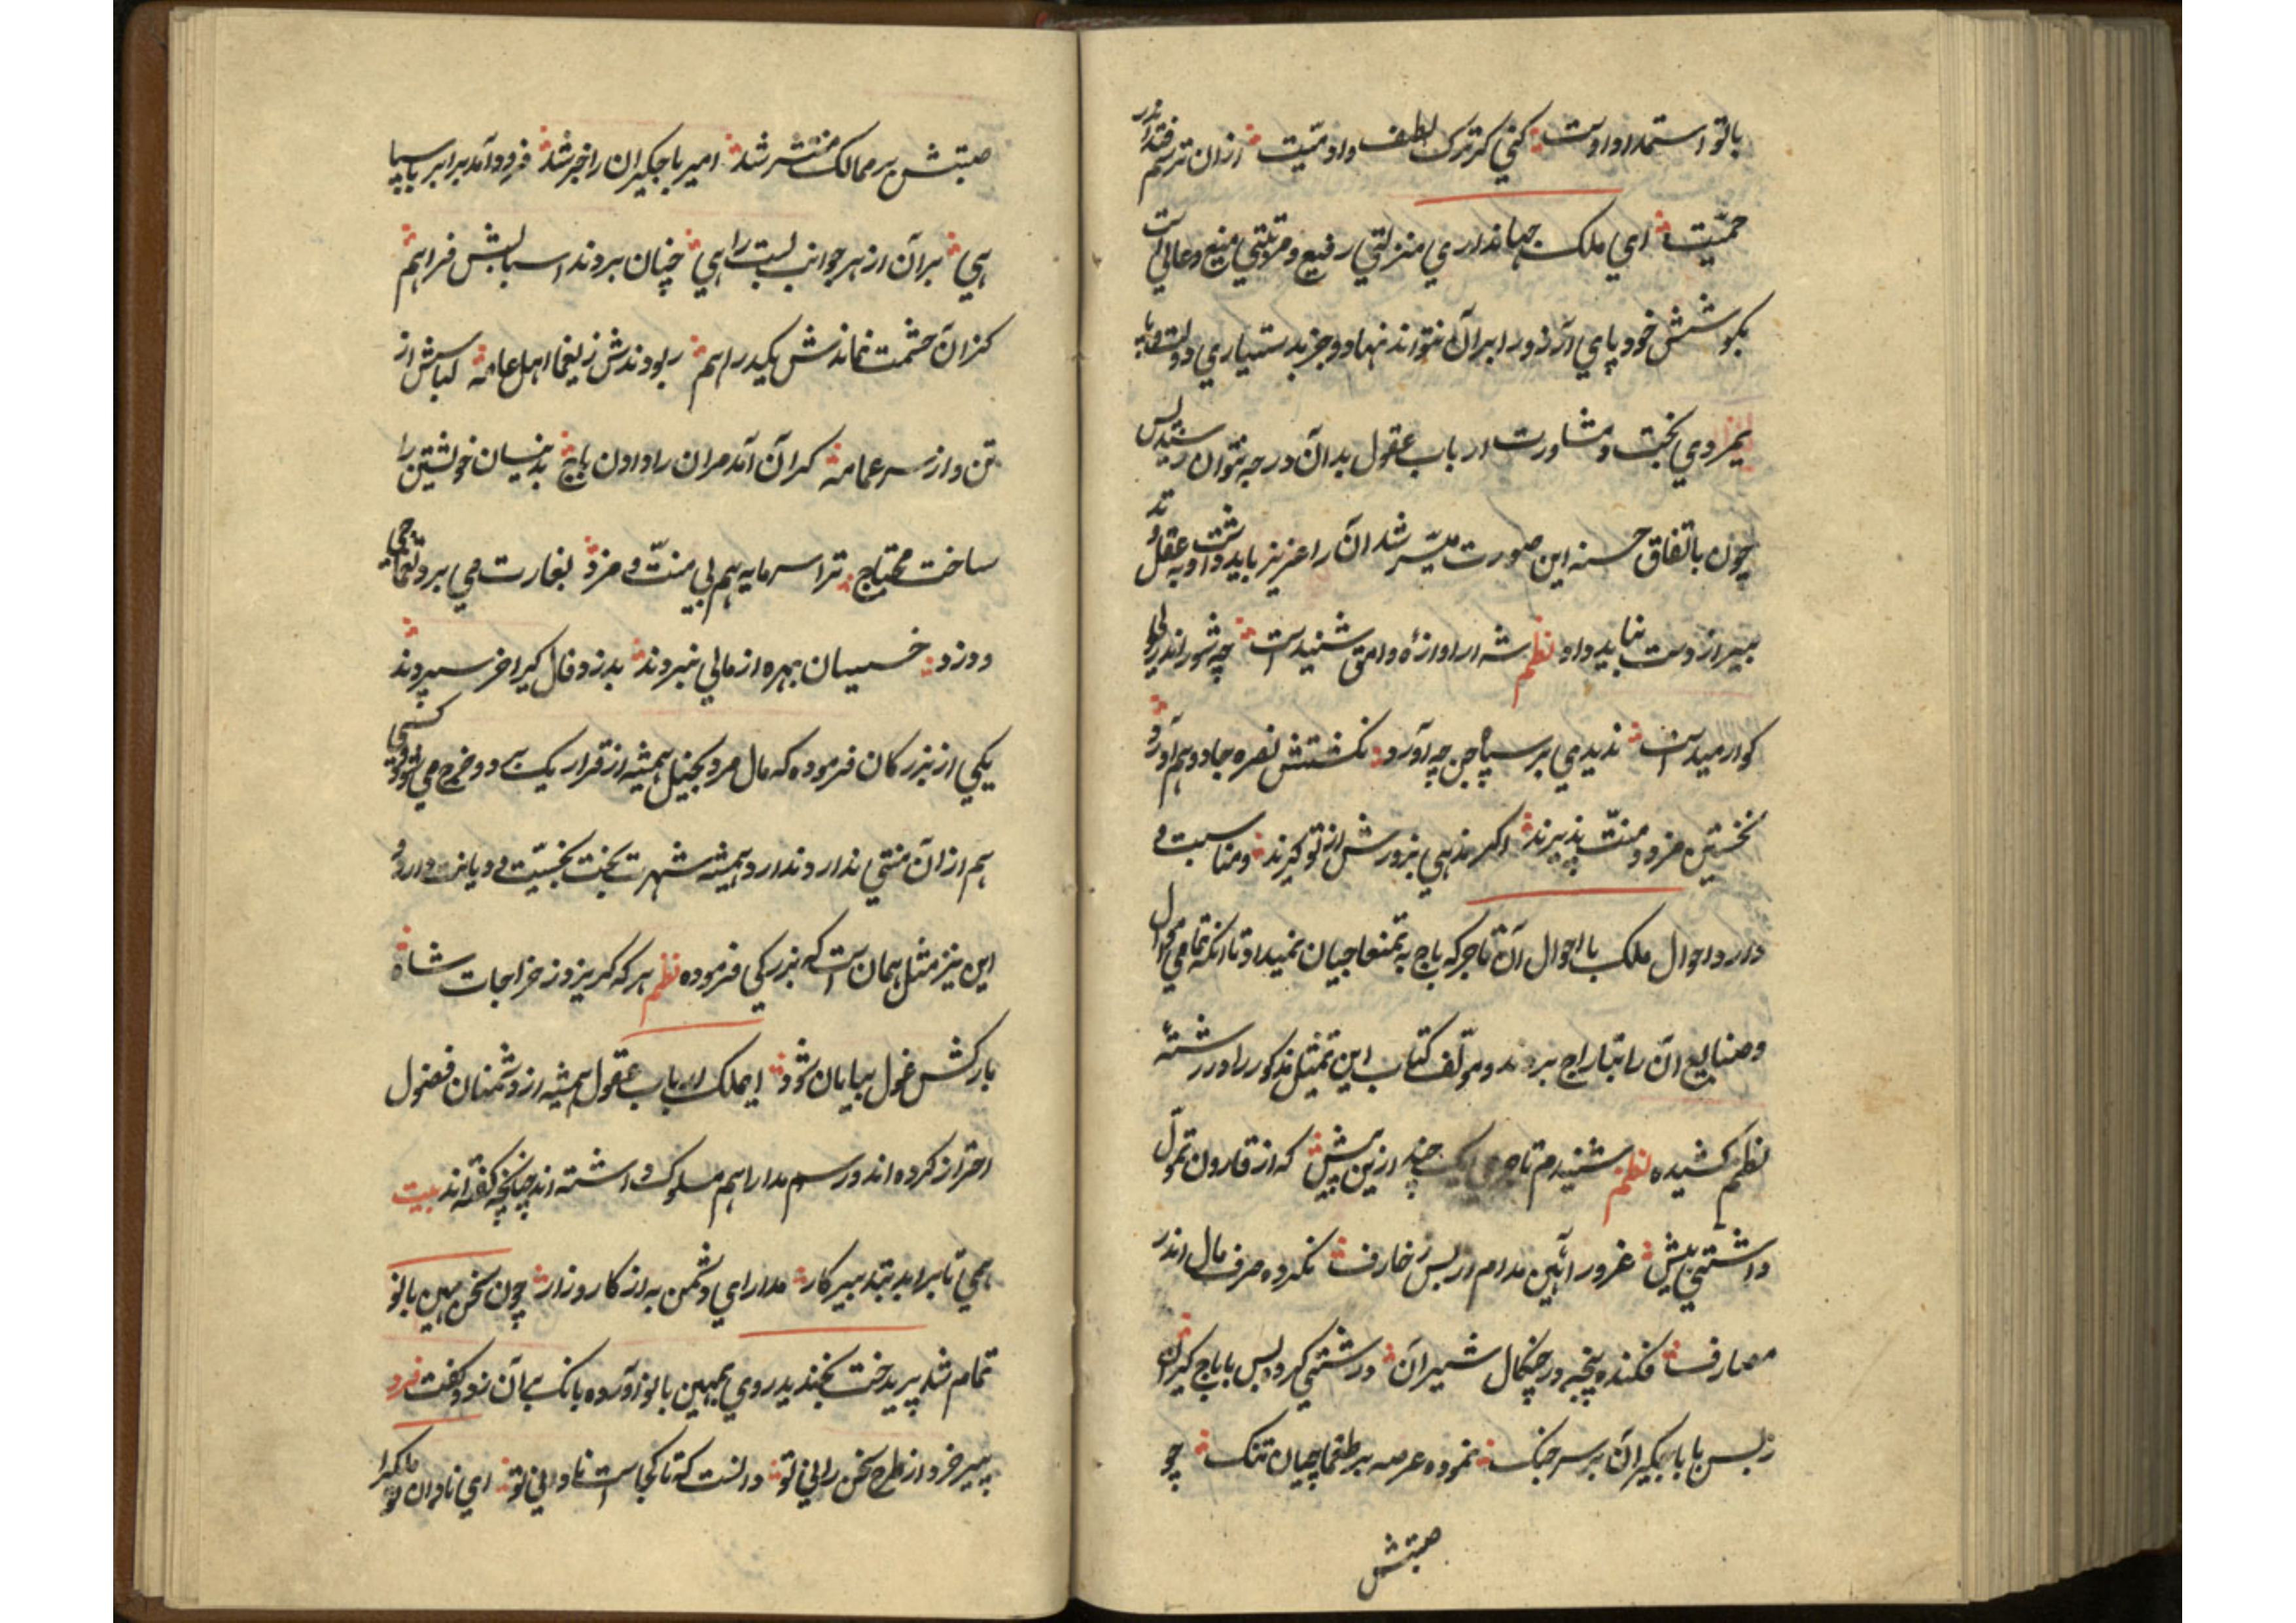 با تو استمداد اوست کنی گر ترک لطف و ادمیّت ازان ترسم فتد اندر
حمیّت ای ملک جهانداری منزلتی رفیع و مرتبتی منیع و عالی است
بکوشش خود پای آرزو را بر آن نتواند نهاد و جز بدستیاری دولت و پا
یمردی بخت و مشاورت ارباب عقول بدان درجه نتوان رسید پس
چون باتفاق حسنه این صورت میسّر شد آن را عزیز باید داشت و به عقل و تد
بیر از دست نباید داد نظم شه ار اوازهٔ وامق شنیدست چه شور اندر
کوارمیدست ندیدی بر سپاه چین چه آورد نکشتش نصره جادو هم آورد
نخستین مزد و منّت پذیرند اگر ندهی بزورش از تو گیرند و مناسبت
دارد احوال ملک با احوال آن تاجر که باج به تمغاجیان نمیداد تا انکه تمامی اموال
و صنایع آن را بتاراج بردند و مؤلف کتاب این تمثیل مذکور را در رشتهٔ
نظم کشیده نظم شنیدم تاجری چند ازین پیش که از قارون تموّل
داشتی بیش غرور آیین مدام از بس زخارف نکرده صرف مال اندر
مصارف فکنده پنجه در چنگال شیران درشتی کرد و بس با باج گیران
ز بس با باجگیران بر سر جنگ نموده عرصه بر طمغاچیان تنک چو
صیتش
صیتش بر ممالک منتشر شد امیر باجگیران را خبر شد فرود آمد برابر با سپا
هی بر آن از هر جوانب بست راهی چنان بردند اسبابش فراهم
کز ان حشمت نماندش یکدراهم ربودندش ز یغما اهل عامه لباس از
تن و از سر عمامه کران آمد مران را دادن باج بدینسان خویشتن را
ساخت محتاج ترا سرمایه هم بی منّت و مزد بغارت می برد تمغاچی
و دزد خسیسان بهره از مالی نبردند بدزد و فال گیر اخر سپردند
یکی از بزرکان فرموده که مال مرد بخیل همیشه از قرار یک بدو خرج می شود و کسی
هم از ان منّتی ندارد و همیشه شهرت بخت بخسّیت و دیانت دارد و
این نیز مثل همان است که بزرکی فرموده نظم هر که گریزد ز خراجات شاه
بارکش غول بیابان شود ایملک ارباب عقول همیشه از دشمنان فضول
احتراز کرده اند و رسم مدارا هم مسلوک داشته اند چنانچه گفته اند بیت
همی تا براید بتدبیر کار مدارای دشمن به از کارزار چون سخن مهین بانو
تمام شد پریدخت بخندید روی بمهین بانو آورده بانک بر آن زد و گفت فرد
پیر خرد از طرح سخن رانی تو دانست که تا کجاست نادانی تو ای نادان تو